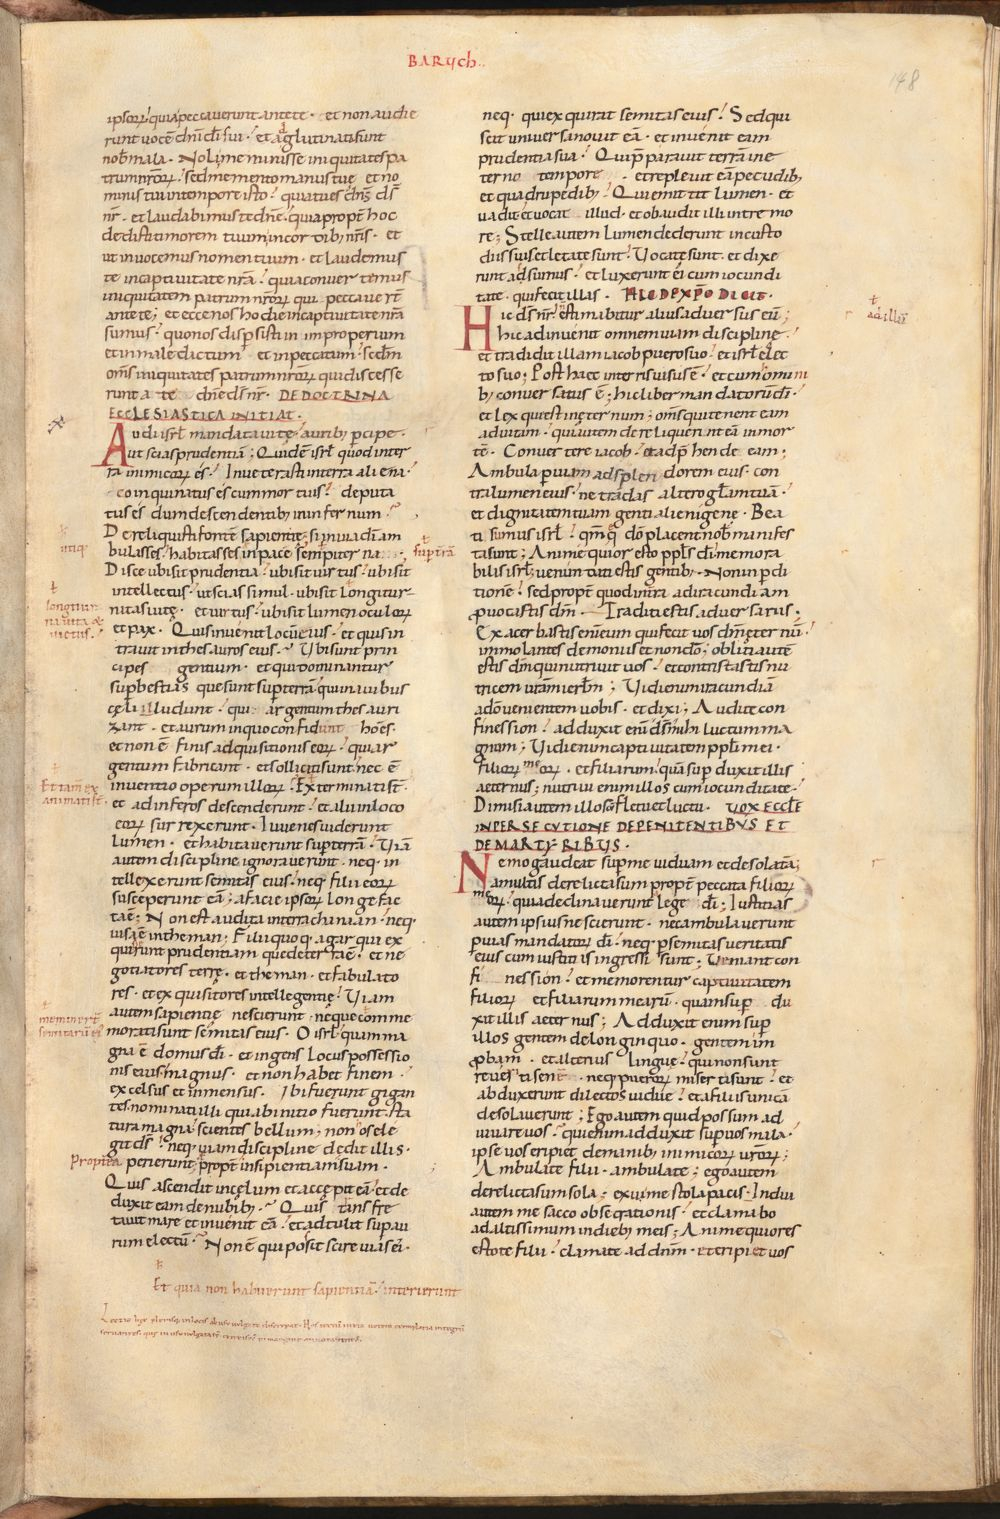 BARUCH
148
ipsoꝝ quia peccaverunt ante te · et non audie
runt vocē dn̄i dī sui · et aglutinata sunt
nob̄ mala · Noli meminisse iniquitates pa
trum nr̄oꝝ · sed memento manus tuę et no
minis tui in tempore isto · quia tu es dn̄s ds̄
nr̄ · et laudabimus te dn̄e · quia propt̄ hoc
dedisti timorem tuum in cordib; nr̄is · et
ut invocemus nomen tuum · et laudemus
te in captivitate nr̄a · quia convertemus
iniquitatem patrum nr̄oꝝ qui peccaver̄t
ante te; et ecce nos hodie in captivitate nr̄a
sumus · quo nos dispsisti in improperium
et in maledictum et in peccatum · scd̄m
om̄s iniquitates patrum nr̄oꝝ qui discesse
runt a te dn̄e ds̄ nr̄ · DE DOCTRINA
ECCLESIASTICA INITIAT ·
Audi isrl̄ mandata vitę · aurib; pcipe ·
ut scias prudentiā; Quid ē isrl̄ quod in ter
ra inimicoꝝ es · Inveterasti in terra aliena ·
coinquinatus es cum mortuis · deputa
tus es cum descendentib; in infernum ·
Dereliquisti fontē sapientię · si in via dī am
bulasses · habitasses in pace sempiterna
Disce ubi sit prudentia · ubi sit virtus · ubi sit
intellectus · ut scias simul · ubi sit longitur
nitas vitę · et virtus · ubi sit lumen oculoꝝ
et pax · Quis invenit locū eius · et quis in
travit in thesauros eius · Ubi sunt prin
cipes gentium · et qui dominantur
sup bestias que sunt sup terrā qui in avibus
cęli illudunt · qui argentum thesauri
zant · et aurum in quo confidunt hōes ·
et non ē finis adquisitionis eoꝝ · qui ar
gentum fabricant · et solliciti sunt · nec ē
inventio operum illoꝝ · Exterminati st̄ ·
et ad inferos descenderunt · et alii in loco
eoꝝ surrexerunt · Iuvenes viderunt
lumen · et habitaverunt sup terrā · Viā
autem discipline ignoraverunt · neq; in
tellexerunt semitas eius · neq; filii eoꝝ
susceperunt eā; a facie ipsoꝝ longe fac
ta ē; Non est audita in terra chanaan · neq;
visa ē in theman; Filii quoq; agar qui ex
quirunt prudentiam que de terra ē · et ne
gotiatores terrę · et theman · et fabulato
res · et exquisitores intellegentię · Viam
autem sapientię nescierunt · neque comme
morati sunt semitas eius · O isrl̄ quam ma
gna ē domus dī · et ingens locus possessio
nis eius · magnus · et non habet finem ·
excelsus et inmensus · Ibi fuerunt gigan
tes nominati illi qui ab initio fuerunt · sta
tura magna · scientes bellum; non hos ele
git ds̄ · neq; viam discipline dedit illis ·
perierunt, propt̄ insipientiam suam ·
Quis ascendit in cęlum et accępit eā · et de
duxit eam de nubib; · Quis transfre
tavit mare et invenit eā · et adtulit sup au
rum electū · Non ē qui possit scire vias ei ·
Propterea
Et quia non habuerunt sapientiā · interierunt
utiq;
sup terrā
longitur
na vita &
victus ·
Et tam̄ ex
animati st̄ ·
meminer̄t
semitarū ei
neq; qui exquirat semitas eius · Sed qui
scit universa novit eā · et invenit eam
prudentia sua · Qui p̄paravit terrā in ę
terno tempore · et replevit eā pecudib;
et quadrupedib; · Qui emittit lumen · et
vadit · et vocat illud · et obaudit illi in tremo
re; Stelle autem lumen dederunt in custo
diis suis et lętate sunt · Vocate sunt · et dixe
runt adsumus · et luxerunt ei cum iocundi
tate · qui fecit illis · HIC DE XP̄O DICIT ·
Hic ds̄ nr̄ · ēstimabitur alius adversus eū ·
Hic adinvenit omnem viam discipline ·
et tradidit illam iacob puero suo · et isrl̄ elec
to suo; Post haec in terris visus ē · et cum omini
b; conversatus ē; hic liber mandatorū dī ·
et lex quę est in ęternum; om̄s qui tenent eam
ad vitam · qui autem dereliquerint eā in mor
tē · Convertere iacob · et adp̄hende eam;
Ambula p viam ad splendorem eius · con
tra lumen eius · ne tradas altero gl̄am tuā ·
et dignitatem tuam genti alienigene · Bea
ti sumus isrl̄ · qm̄ q̨ dō placent nob̄ manifes
ta sunt; Anime quior esto ppl̄s dī · memora
bilis isrl̄; venundati estis gentib; · Non in pdi
tione · sed propt̄ quod in ira ad iracundiam
provocastis dm̄ · Traditi estis adversariis;
Exacerbastis enim eum qui fecit vos dm̄ ęternū ·
immolantes demoniis et non dō; obliti autē
estis dm̄ qui nutrivit vos · et contristastis nu
tricem vr̄am ierl̄m; Vidit enim iracundiā
a dō venientem vobis · et dixi; Audite con
fines sion · adduxit enī ds̄ mihi luctum ma
gnum; Vidi enim captivitatem ppl̄i mei ·
filioꝝ meoꝝ · et filiarum · quā sup duxit illis
aeternus; nutrivi enim illos cum iocunditate ·
Dimisi autem illos cū fletu et luctu · VOX ECCLĒ
IN PERSECUTIONE DE PENITENTIBUS ET
DE MARTYRIBUS ·
Nemo gaudeat sup me viduam et desolatā;
A multis derelicta sum propt̄ peccata filioꝝ
meoꝝ · quia declinaverunt lege dī; Iustitias
autem ipsius nescierunt · nec ambulaverunt
p vias mandatoꝝ dī · neq; p semitas veritatis
eius cum iustitiis ingressi sunt; Veniant con
fines sion · et memorentur captivitatem
filioꝝ et filiarum mearū · quam sup du
xit illis aeternus; Adduxit enim sup
illos gentem de longinquo · gentem im
probam · et alterius lingue · qui non sunt
reveriti senē · neq; pueroꝝ miserti sunt · et
abduxerunt dilectos vidue · et a filiis unicā
desolaverunt; Ego autem quid possum ad
iuvare vos · qui enim adduxit sup vos mala ·
ipse vos eripiet de manib; inimicoꝝ vr̄oꝝ;
Ambulate filii · ambulate; ego autem
derelicta sum sola; exui me stola pacis · Indui
autem me sacco obsecrationis · et clamabo
ad altissimum in dieb; meis; Anime quiores
estote filii · clamate ad dn̄m · et eripiet vos
ad illū